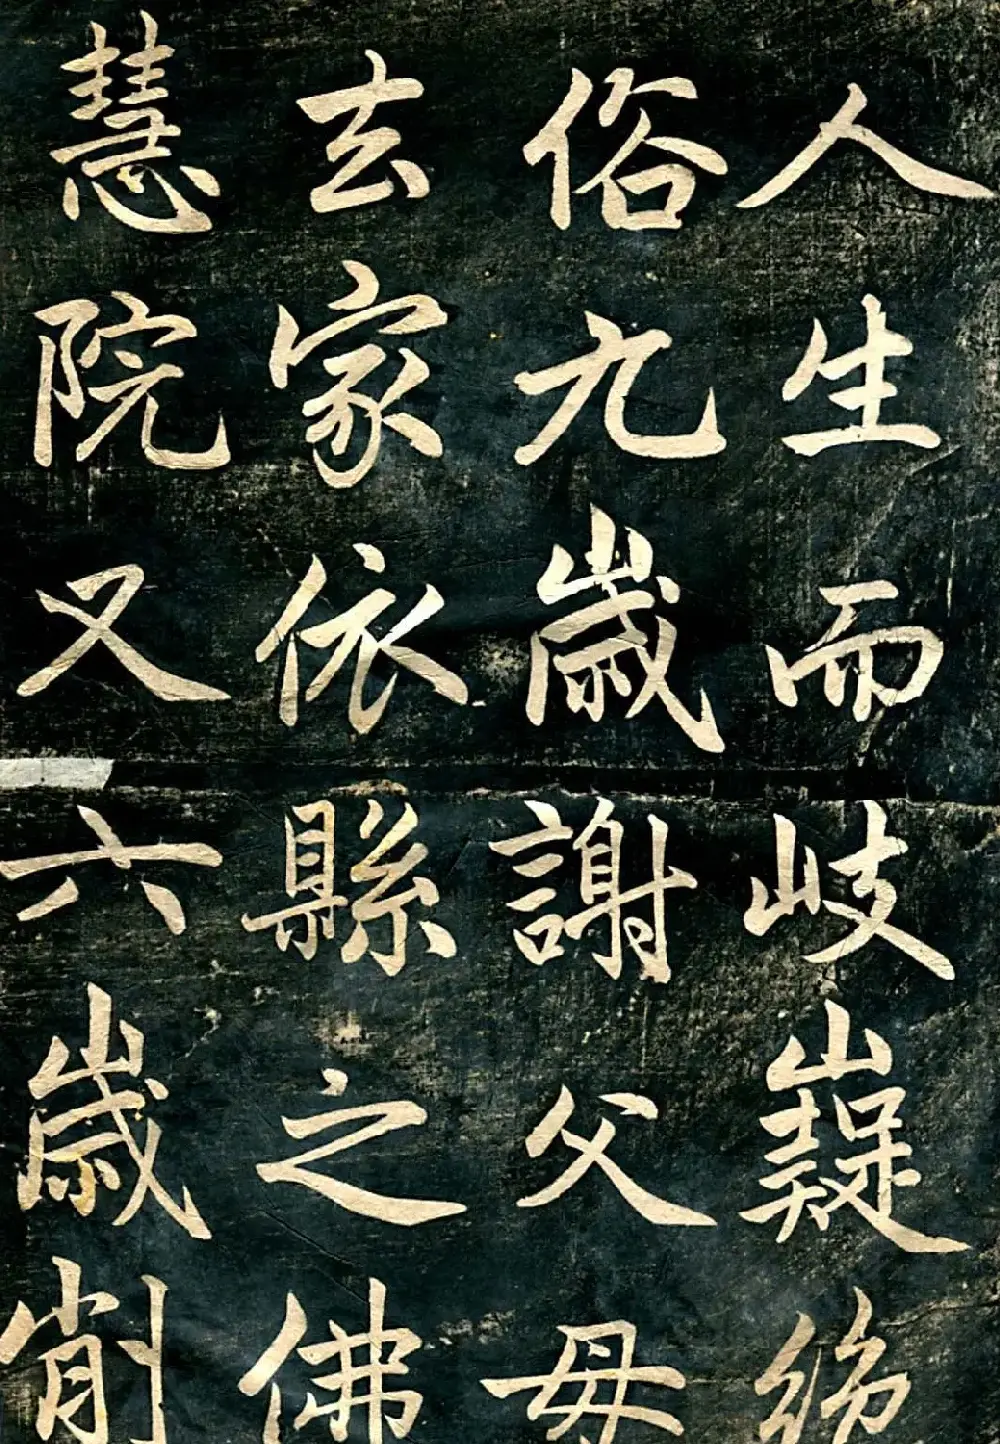 人生而岐嶷絶
俗九歳謝父母
玄家依縣之佛
慧院又六歳削